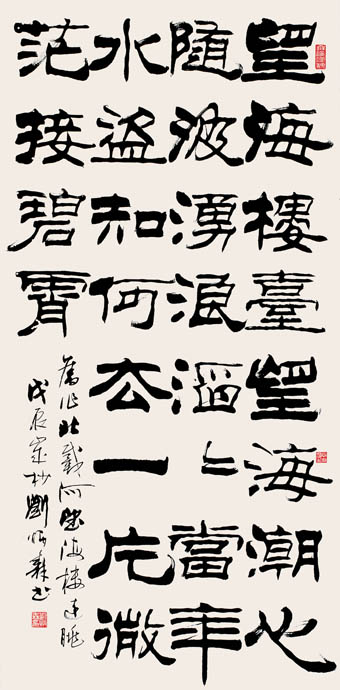 望海樓臺望海潮心
隨波湧浪滔〻當年
水盜知何去一片微
茫接碧霄
舊作北戴河望海樓遠眺
戊辰歲杪劉炳森書